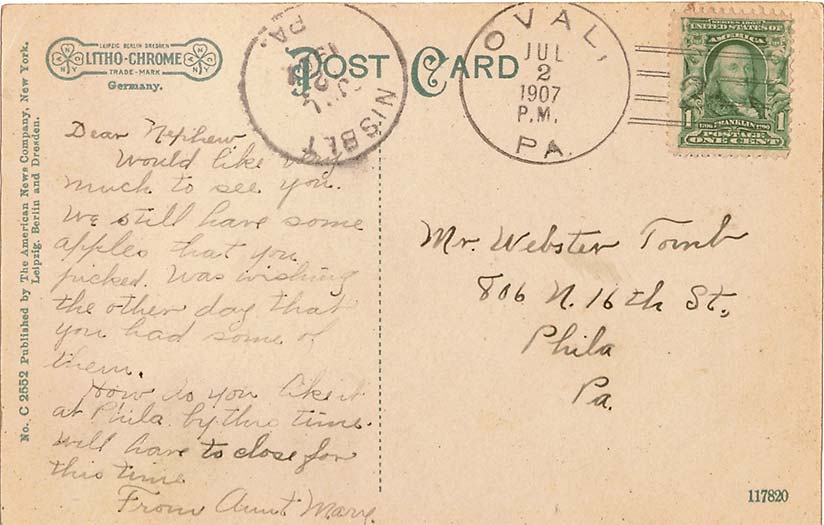 LEIPZIG BERLIN DRESDEN
LITHO-CHROME
TRADE-MARK
Germany.
No. C 2552 Published by The American News Company, New York.
Leipzig, Berlin and Dresden.
POST CARD
NISBET
PA.
JUL
OVAL,
JUL
2
1907
P.M.
PA.
SERIES 1902
UNITED STATES OF
AMERICA
1706 FRANKLIN 1790
1 POSTAGE 1
ONE CENT
Dear Nephew
Would like very
much to see you.
We still have some
apples that you
picked. Was wishing
the other day that
you had some of
them.
How do you like it
at Phila. by this time.
Will have to close for
this time
From Aunt Mary.
Mr. Webster Tomb
806 N. 16th St.
Phila
Pa.
117820